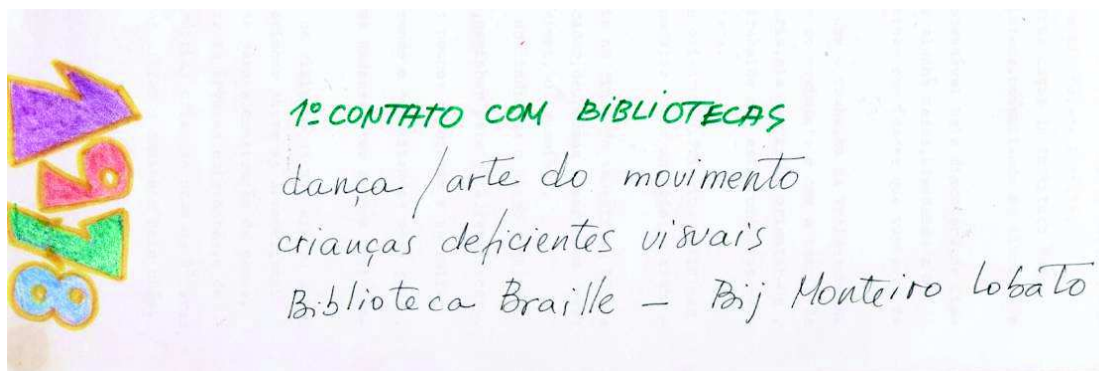 1978
1º CONTATO COM BIBLIOTECAS
dança / arte do movimento
crianças deficientes visuais
Biblioteca Braille – Bij Monteiro Lobato